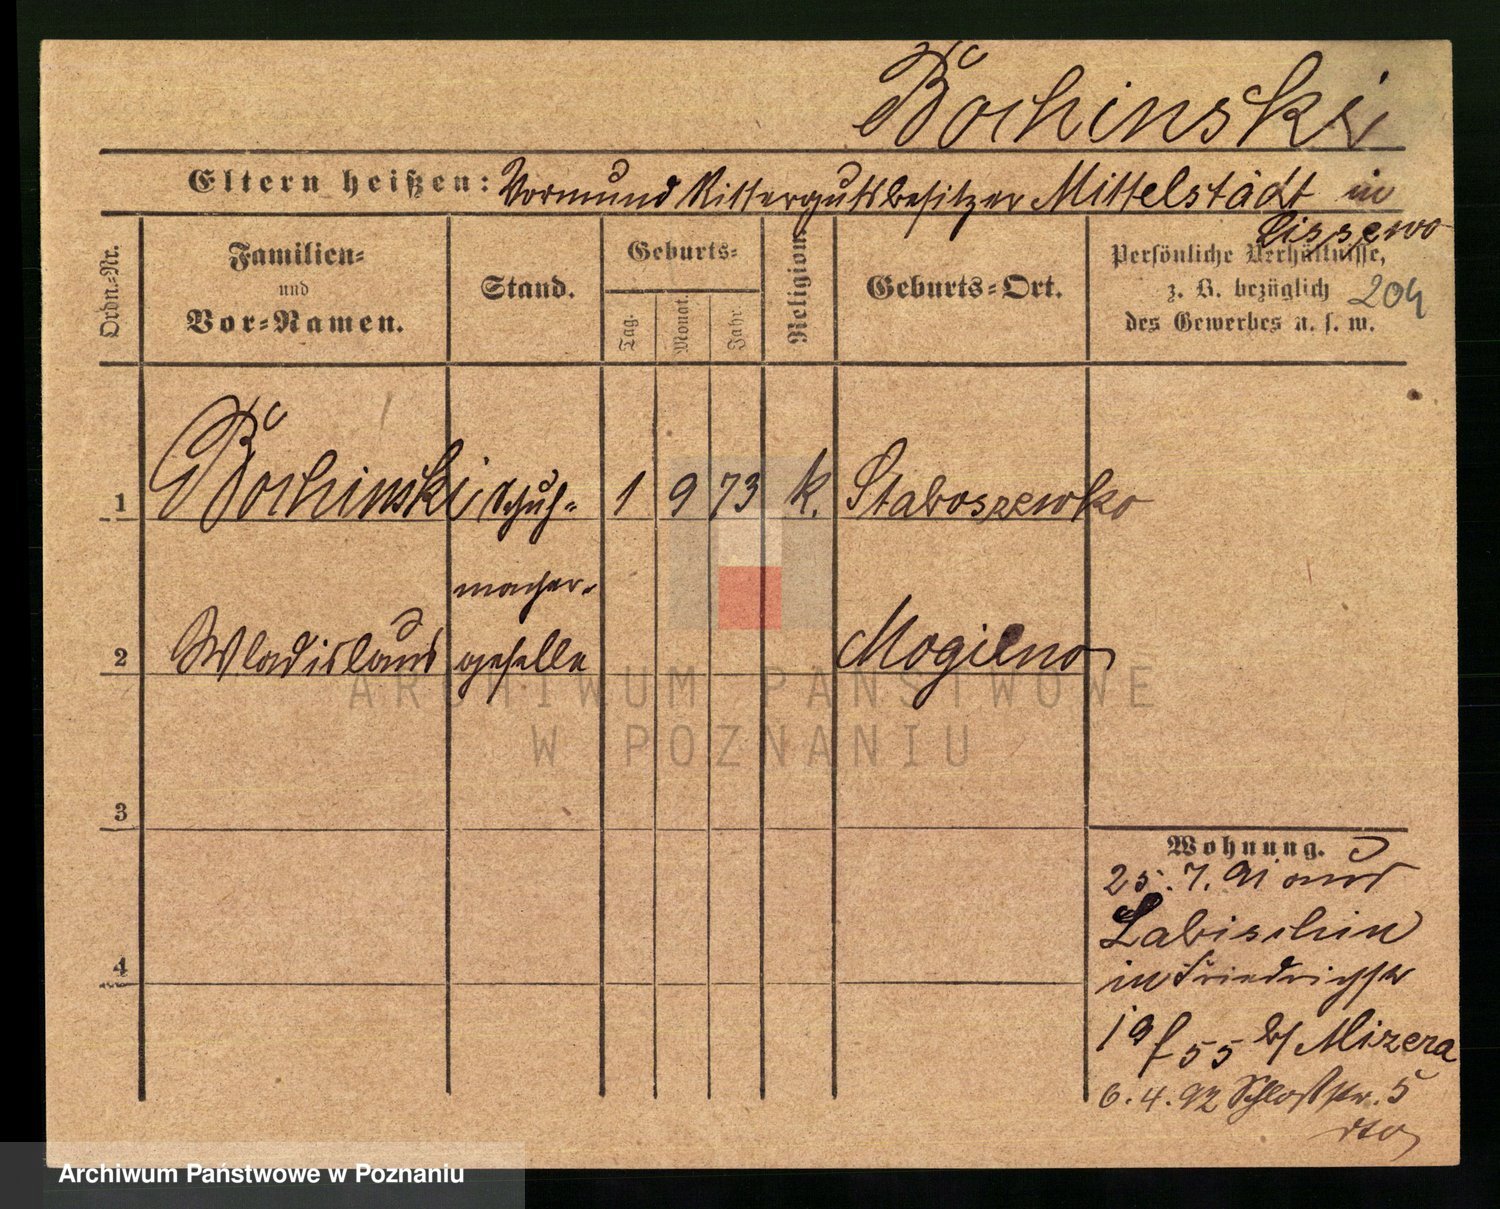 Bochinski
Eltern heißen: Vormund Rittergutsbesitzer Mittelstädt in
Lissewo
Ordn.-Nr.
Familien-
und
Vor-Namen.
Stand.
Geburts-
Tag.
Monat.
Jahr.
Religion.
Geburts-Ort.
Persönliche Verhältnisse,
z. B. bezüglich
des Gewerbes u. s. w.
204
1 Bochinski Schuh- 1 9 73 k. Staboszewko
macher-
2 Wladislaus geselle Mogilno
3
4
Wohnung.
25. 7. 91 aus
Labischin
in Friedrichstr
19 55 b/ Mizera
6. 4. 92 Schloßstr. 5
dto
ARCHIWUM PAŃSTWOWE
W POZNANIU
Archiwum Państwowe w Poznaniu